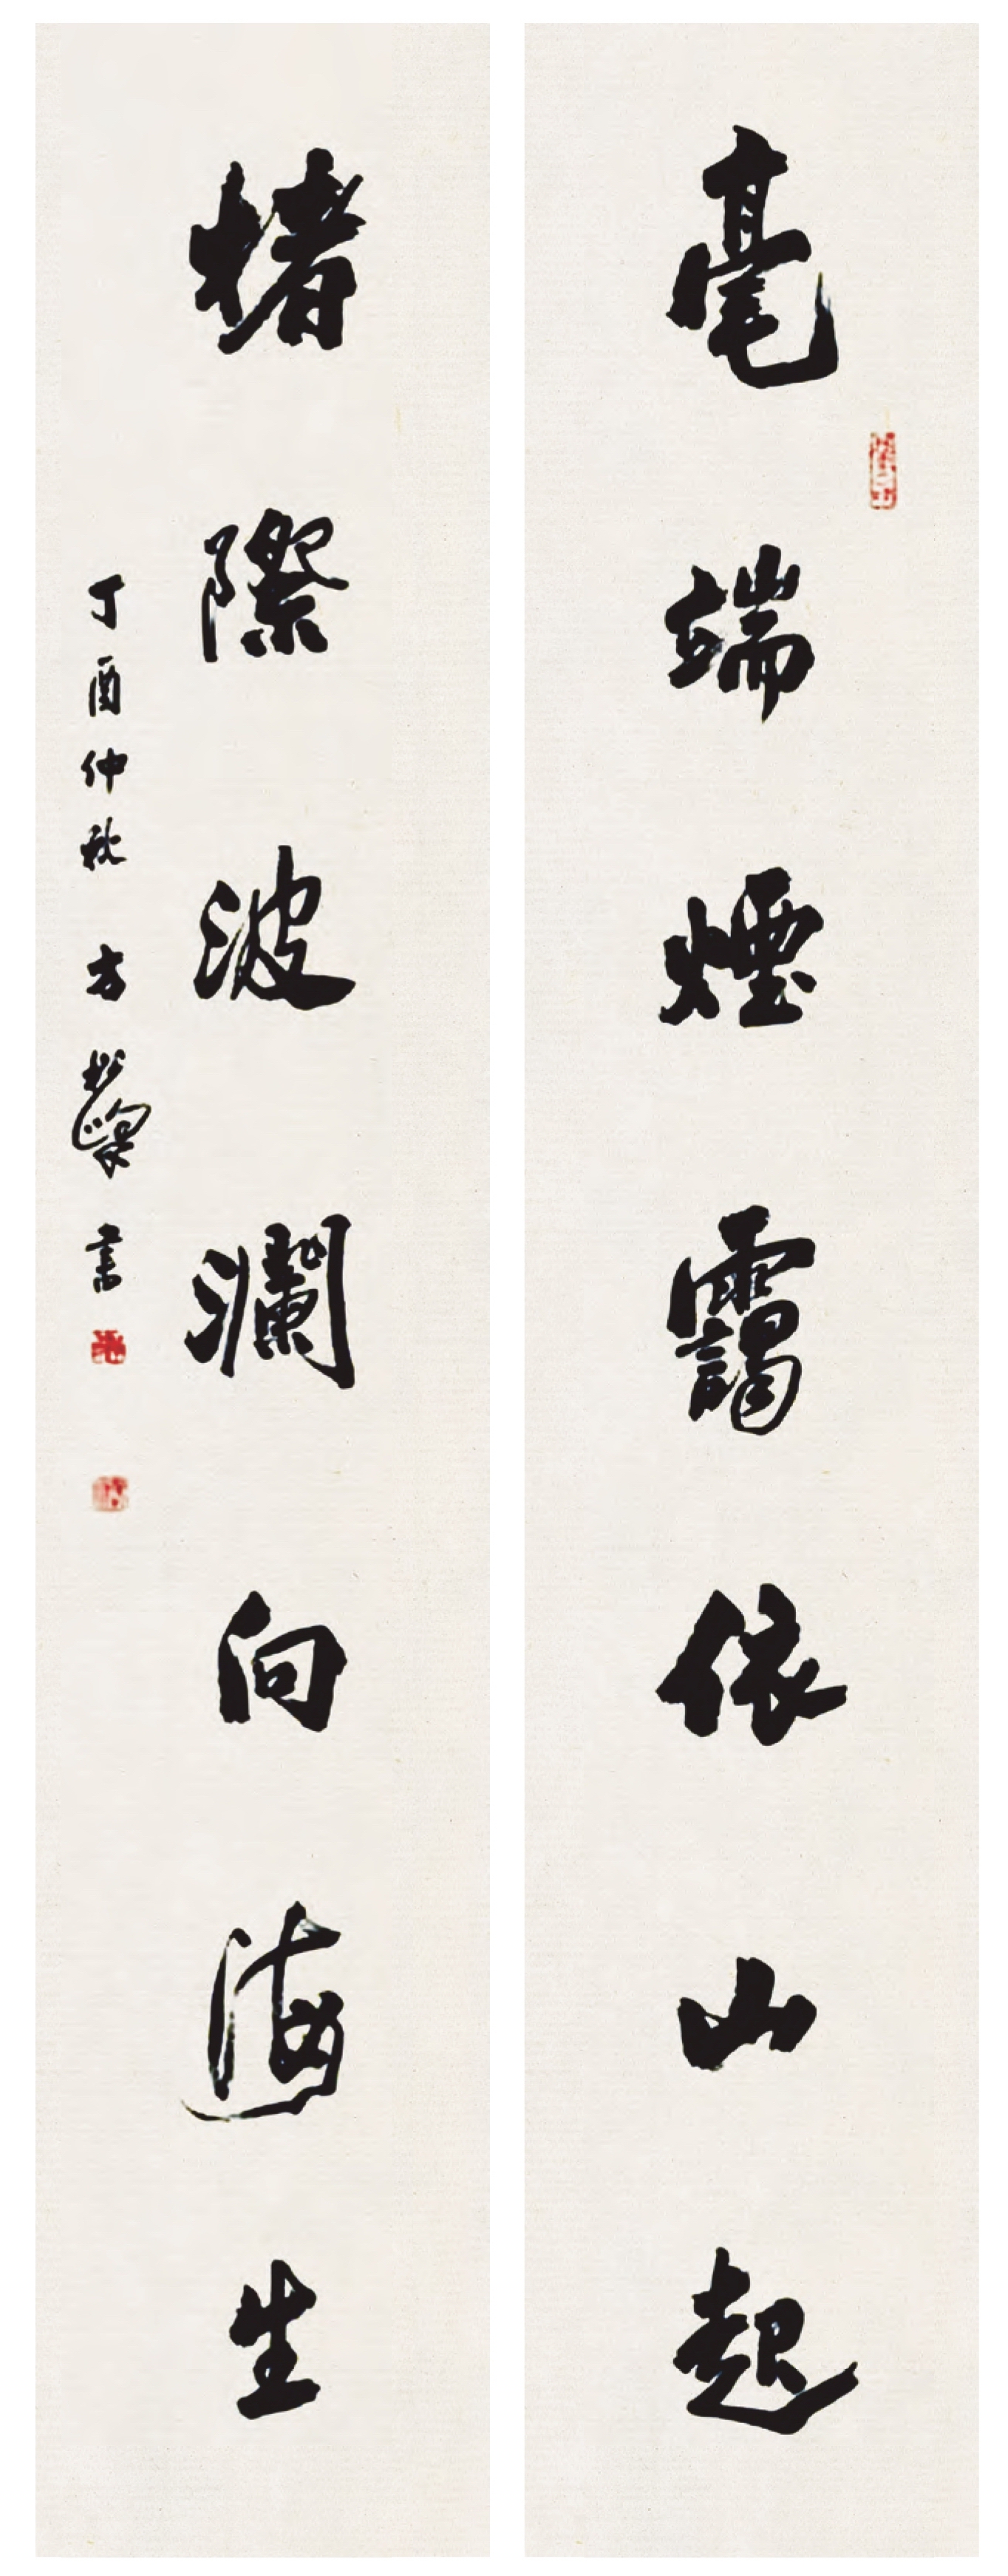 毫端煙靄依山起
楮際波瀾向海生
丁酉仲秋 方 書